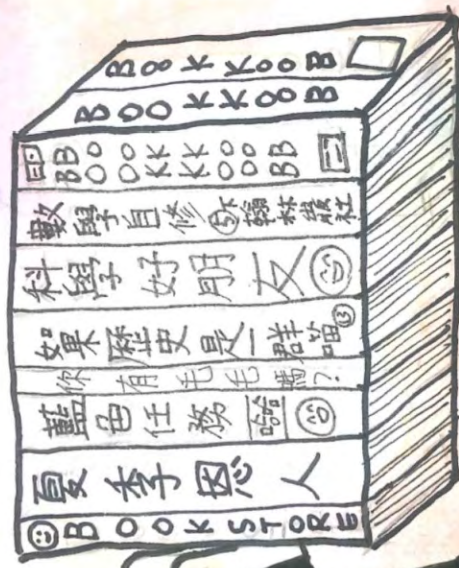 BOOKKOOB
BOOKKOOB
BOOKKOOB
BOOKKOOB
數學自修 5下 翰林出版社
科學好朋友
如果歷史是一群喵 13
你有毛毛嗎?
藍色任務
夏季恩人
BOOK STORE